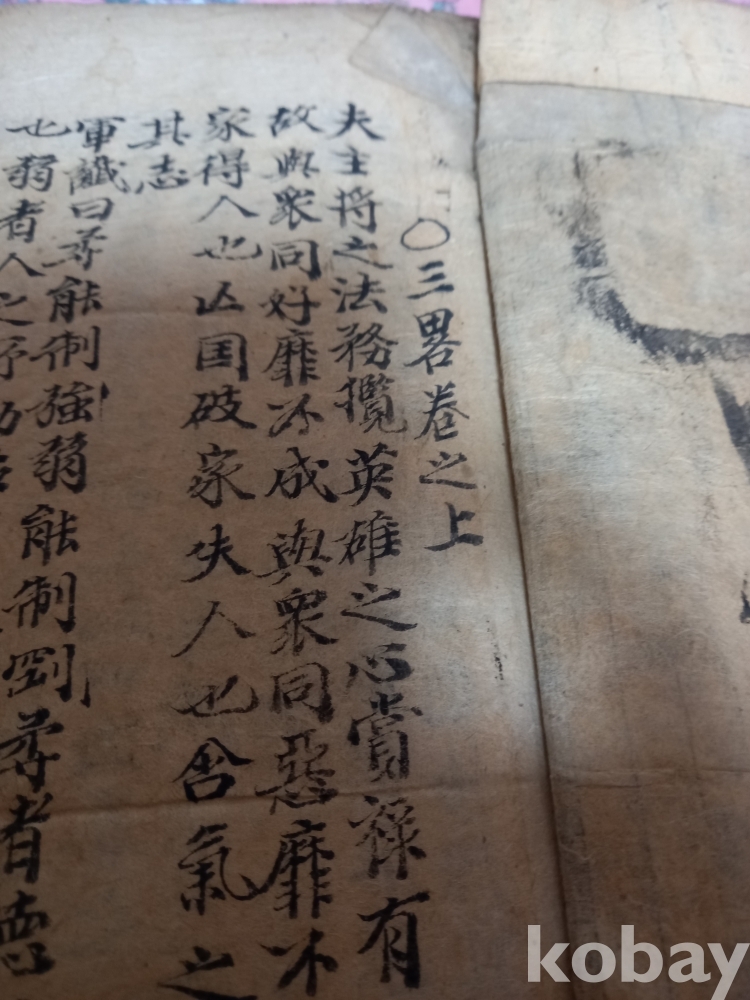 〇三畧卷之上
夫主將之法務攬英雄之心賞祿有
故與衆同好靡不成與衆同惡靡不
家得人也亡国破家失人也含氣之
其志
軍讖曰柔能制強弱能制剛柔者德
也弱者人之所助
kobay